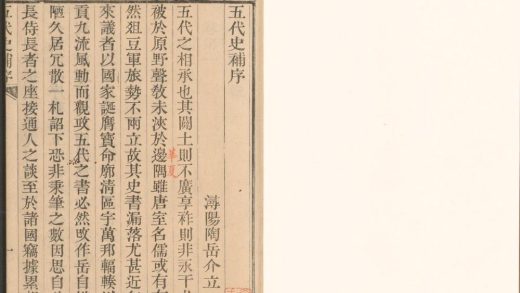 五代史補序
潯陽陶岳介立
五代之相承也其闢土則不廣享祚則非永干
華夏
被於原野聲敎未浹於邊隅雖唐室名儒或有
然俎豆軍旅勢不兩立故其史書漏落尤甚近
來議者以國家誕膺寶命廓清區宇萬邦輻輳
貢九流風動而觀攻五代之書必然攺作岳自
陋久居冗散一札詔下恐非秉筆之數因思自
長侍長者之座接通人之談至於諸國竊據累
五代史補序 一